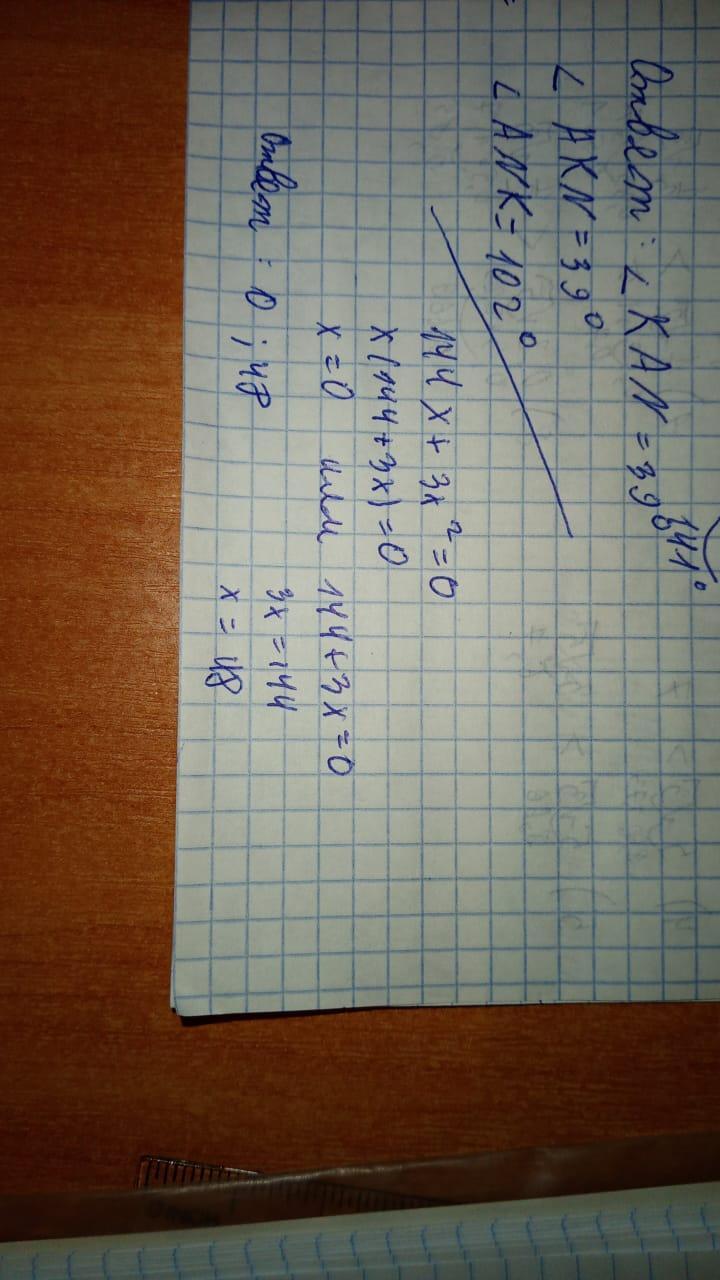 141°
Ответ: ∠ KAN = 39°
∠ AKN = 39°
∠ ANK = 102°
144x + 3x² = 0
x(144+3x) = 0
x = 0 или 144+3x=0
3x = 144
x = 48
Ответ: 0 ; 48